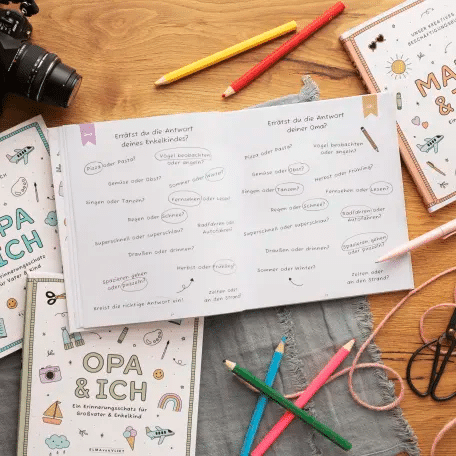 UNSER KREATIVES
MA
&
OPA
& ICH
Ein Erinnerungsschatz
für Vater & Kind
Errätst du die Antwort
deines Enkelkindes?
Pizza oder Pasta?
Vogel beobachten
oder angeln?
Gemüse oder Obst?
Sommer oder Winter?
Singen oder Tanzen?
Fernsehen oder Lesen?
Regen oder Schnee?
Radfahren oder
Autofahren?
Superschnell oder superschlau?
Draußen oder drinnen?
Spazieren gehen
oder puzzeln?
Herbst oder Frühling?
Kreist die richtige Antwort ein!
Zelten oder
an den Strand?
Errätst du die Antwort
deiner Oma?
Pizza oder Pasta?
Vogel beobachten
oder angeln?
Gemüse oder Obst?
Herbst oder Frühling?
Singen oder Tanzen?
Fernsehen oder Lesen?
Regen oder Schnee?
Radfahren oder
Autofahren?
Superschnell oder superschlau?
Draußen oder drinnen?
Spazieren gehen
oder puzzeln?
Sommer oder Winter?
Zelten oder
an den Strand?
OPA
& ICH
Ein Erinnerungsschatz für
Großvater & Enkelkind